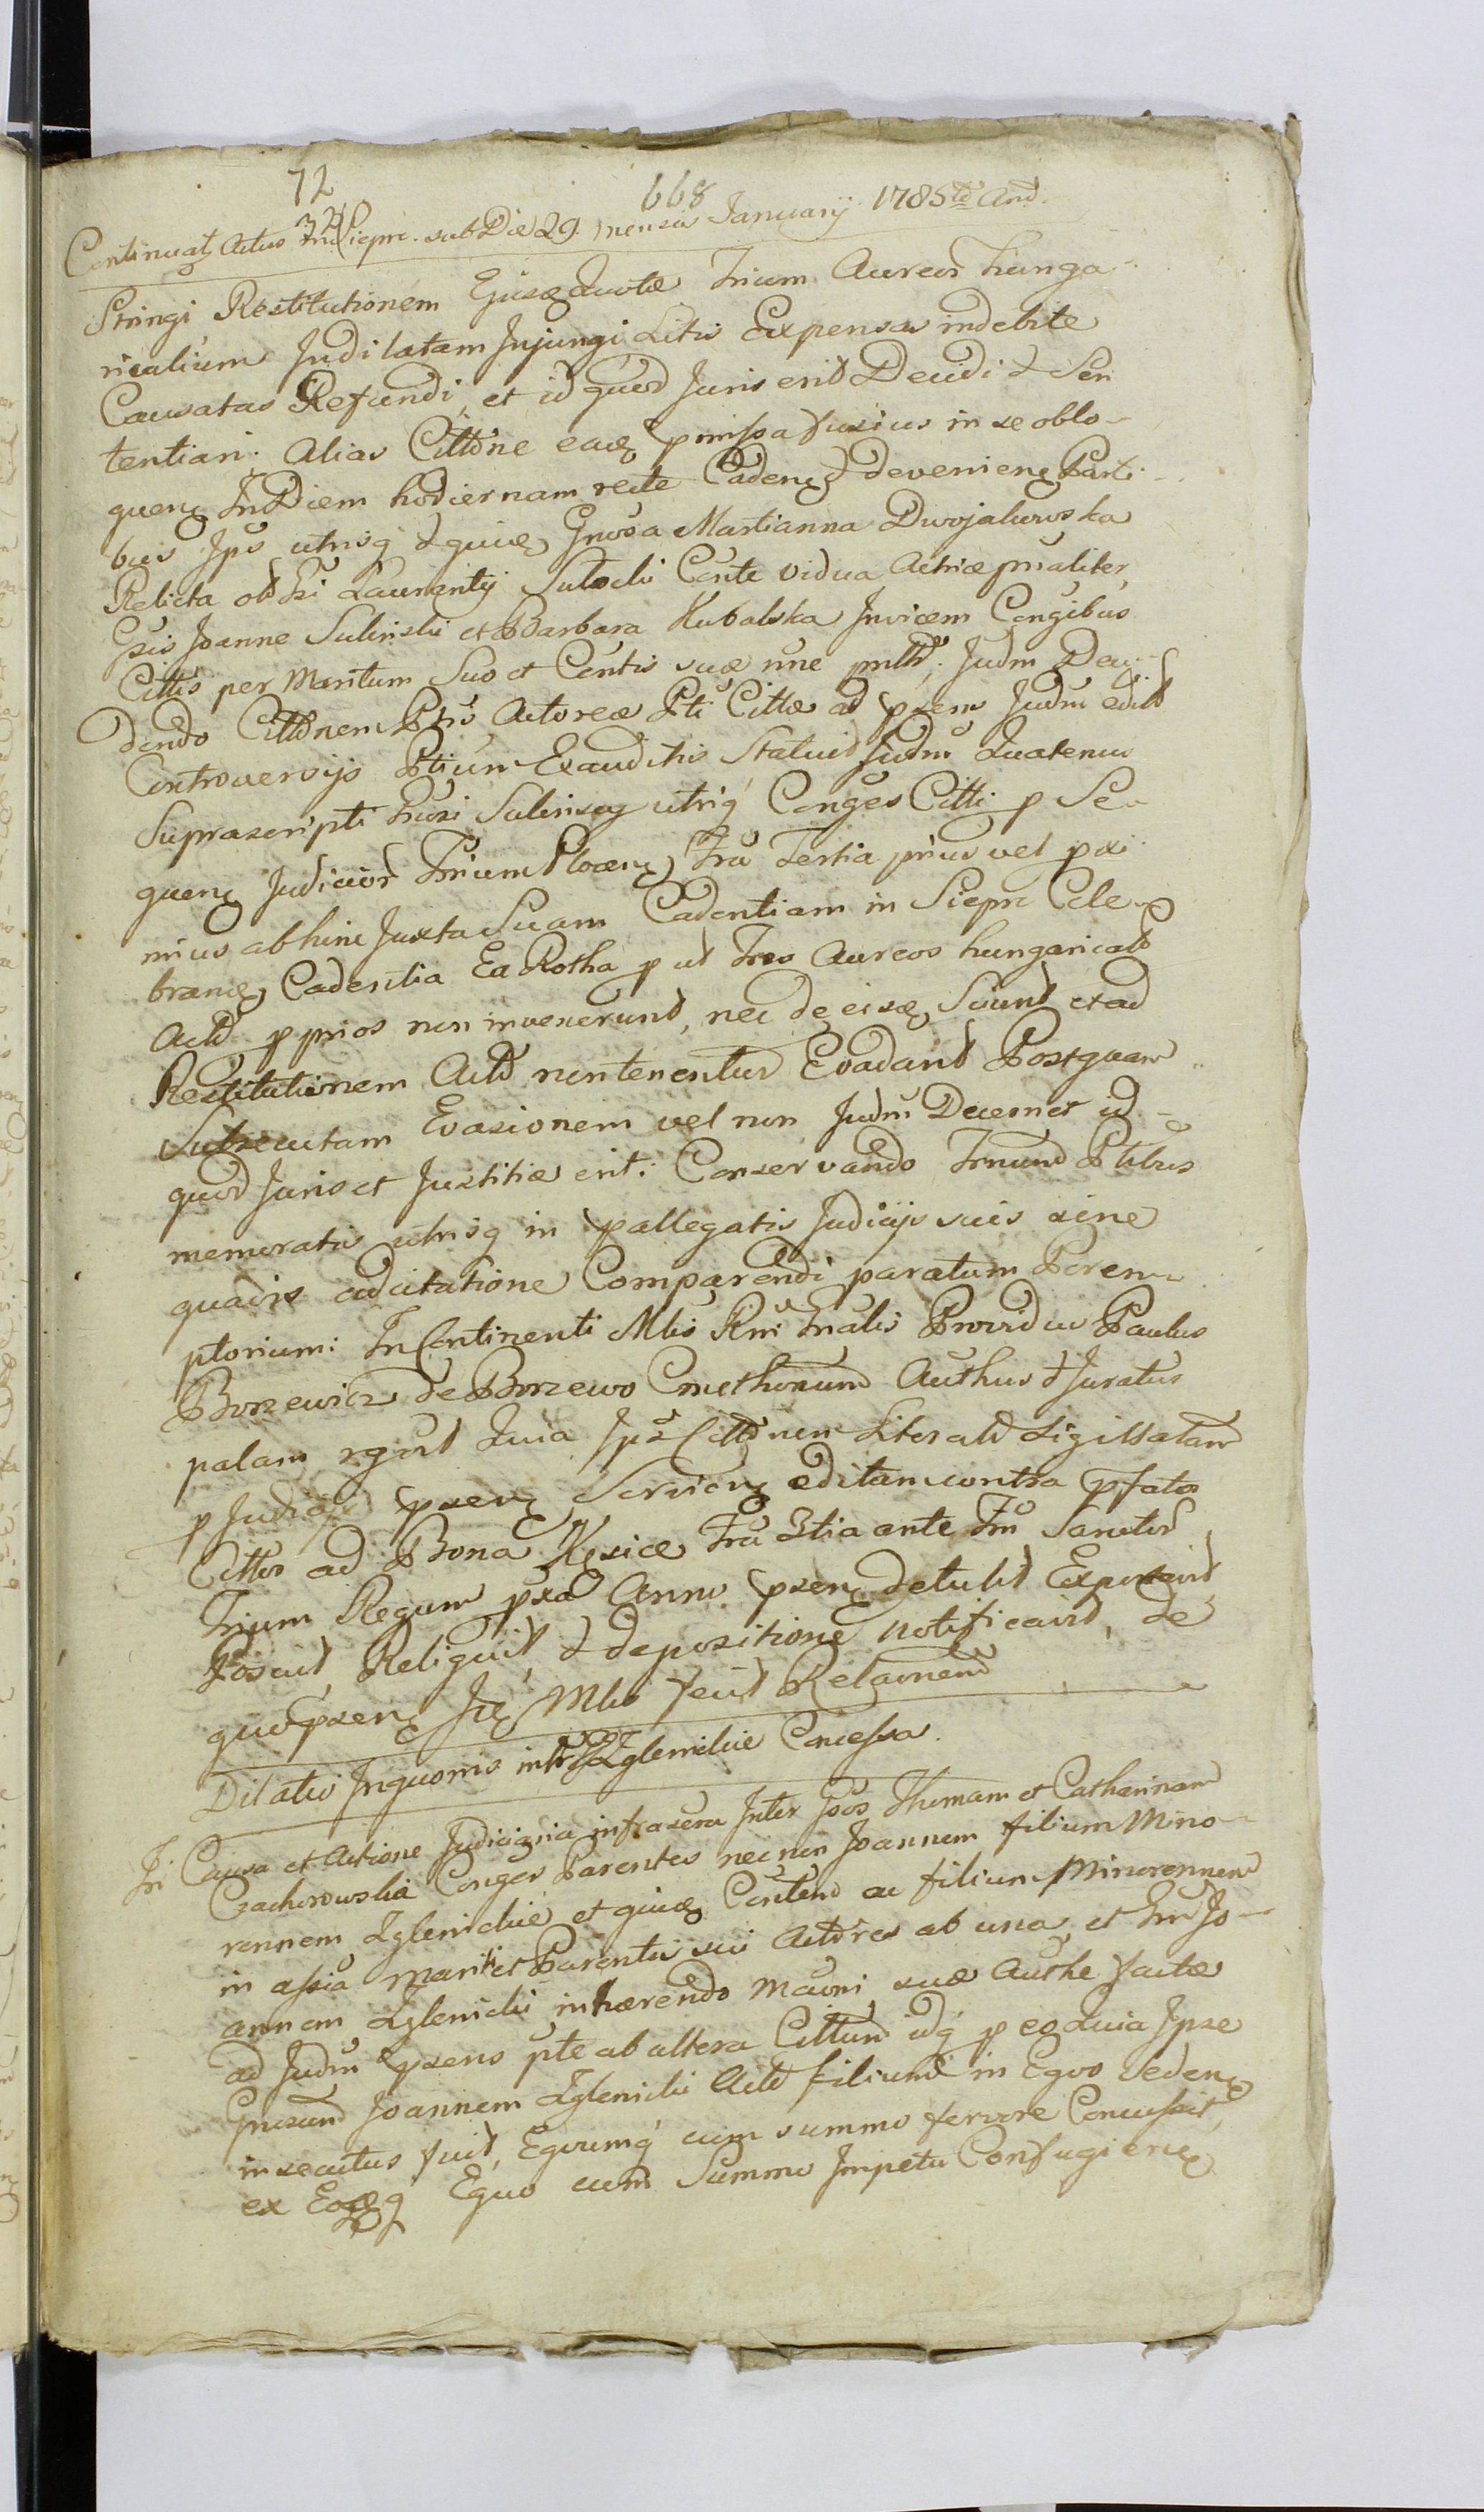 72 668
Continuatz Actus Siepre. sub Die 29. mensis January 1785to And.
Stringi Restitutionem Ejusq Quotæ Trium Aureor Hunga-
ricalium Judilatam Injungi Litis Expensas indebite
Causatas Refundi, et id quod Juris erit Decidi & Sen
tentiari. Alias Cittõne eaq pmissa fusius in se oblo-
quenq In Diem hodiernam recte Cadenq & devenienq Parti-
bus Ips utrisq & quiaq Gnosa Marianna
Relicta olt Laurentij Cõnte vidua Actrice pnaliter,
Gsis Joanne Sulinski et Barbara Kubalska Invicem Congibus
Cittis per Maritum Suo et Contis suæ nne Judm Decy-
dendo Cittõnem Actoreæ Pti Cittæ ad psens Judm edit
Controversijs Ptium Exauditis Statuit Judm Quatenus
Suprascripti Sulinscy utriq Conges Citti p Se-
quenq Judicior Trium Plocenq Fra Tertia prius vel pxi-
mius abhinc Juxta Suam Cadentiam in Siepre Cele-
branq Cadentia Ea Rotha p ut Tres Aureos hungaricalt
Actt p prios non invenerunt, nec de eisq Sciunt et ad
Restitutionem Actt non tenentur Evadant Postquam
Subsecutam Evasionem vel non Judm Decernet id
quod Juris et Justitiæ erit. Conservando Trnum Ptibus
memoratis utrisq in pallegatis Judicijs suis sine
quavis adcitatione Comparendi paratum Peren-
ptorium. In Continenti Mlis Rni Providus Paulus
Borzewicz de Borzewo Cmethonum Authus & Juratus
palam rgvit Quia Ips Cittõnem Literalt Sigillatam
p Judicy psenq Servienq editam contra pfatos
Cittos ad Bona Fra 3tia ante Fm Sanctor
Trium Regum pxa Anno psenq detulit Exportavit
Posuit Reliquit, & depositione notificavit, de
quo psenq Mlis fecit Relaonem
Dilatio Inquonis intr Zglenickie Concessa.
In Causa et Actione Judiciaria infrascra Inter Gsos Thomam et Catharinam
Czachorowska Conges Parentes nec non Joannem filium Mino-
rennem Zglenickie et quiaq Contem ac filium Minorennem
in assia mariti et Parentis sui Actores ab una, et Jo-
annem Zglenicki inhærendo Mauoni suæ Authe factæ
ad Judm psens pte ab altera Cittum idq p eo Quia Ipse
Gnosum Joannem Zglenicki Actt filium in Equo Sedenq
insecutus fuit, Equumq cum summo fervore Concussit,
ex Eoq Equo cum Summo Impetu Confugienq